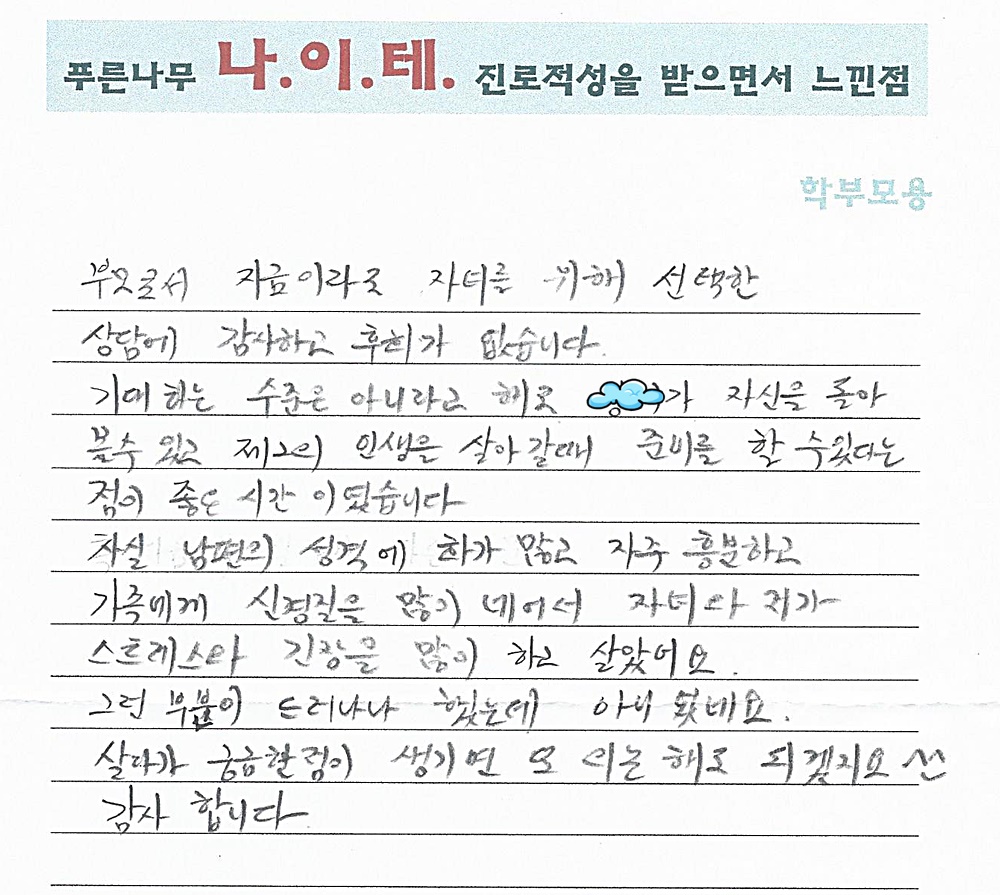 푸른나무 나.이.테. 진로적성을 받으면서 느낀점
학부모용
부모로서 지금이라도 자녀를 위해 선택한
상담에 감사하고 후회가 없습니다.
기대하는 수준은 아니라고 해도 가 자신을 돌아
볼수 있고 제2의 인생을 살아갈때 준비를 할 수있다는
점이 좋은 시간 이였습니다
사실 남편의 성격에 화가 많고 자주 흥분하고
가족에게 신경질을 많이 내어서 자녀와 저가
스트레스와 긴장을 많이 하고 살았어요.
그런 부분이 드러나나 했는데 아니 였네요.
살다가 궁금한점이 생기면 또 해도 되겠지요 ^^
감사 합니다